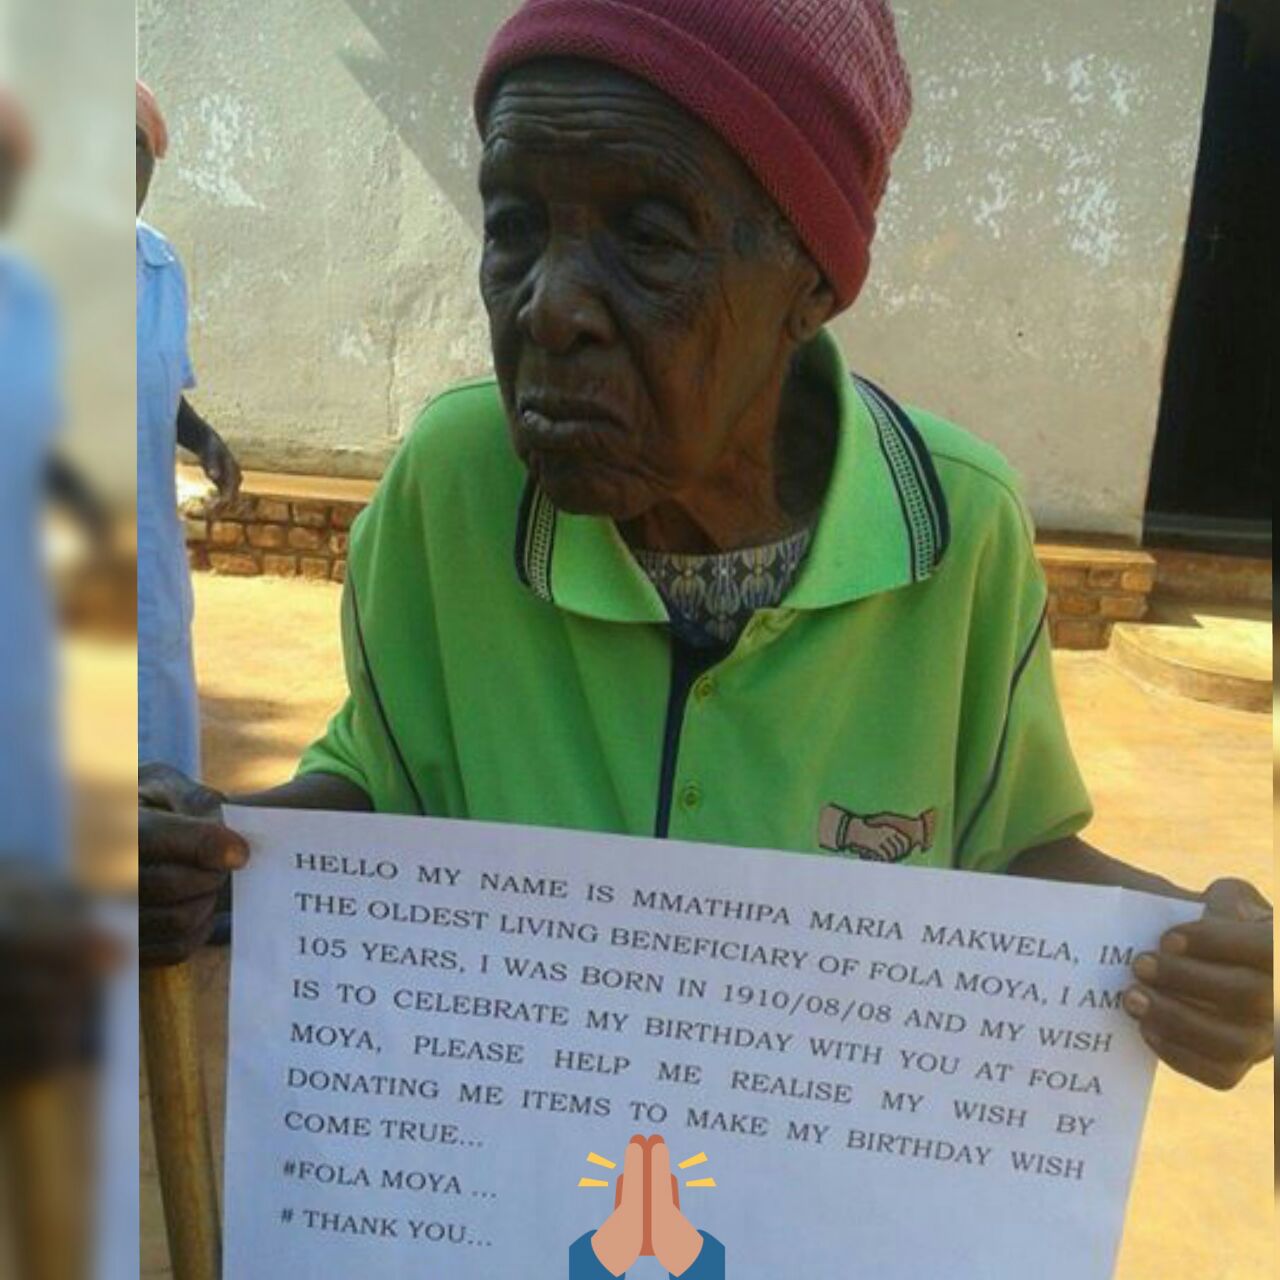 HELLO MY NAME IS MMATHIPA MARIA MAKWELA, IM
THE OLDEST LIVING BENEFICIARY OF FOLA MOYA, I AM
105 YEARS, I WAS BORN IN 1910/08/08 AND MY WISH
IS TO CELEBRATE MY BIRTHDAY WITH YOU AT FOLA
MOYA, PLEASE HELP ME REALISE MY WISH BY
DONATING ME ITEMS TO MAKE MY BIRTHDAY WISH
COME TRUE...
#FOLA MOYA ...
# THANK YOU...